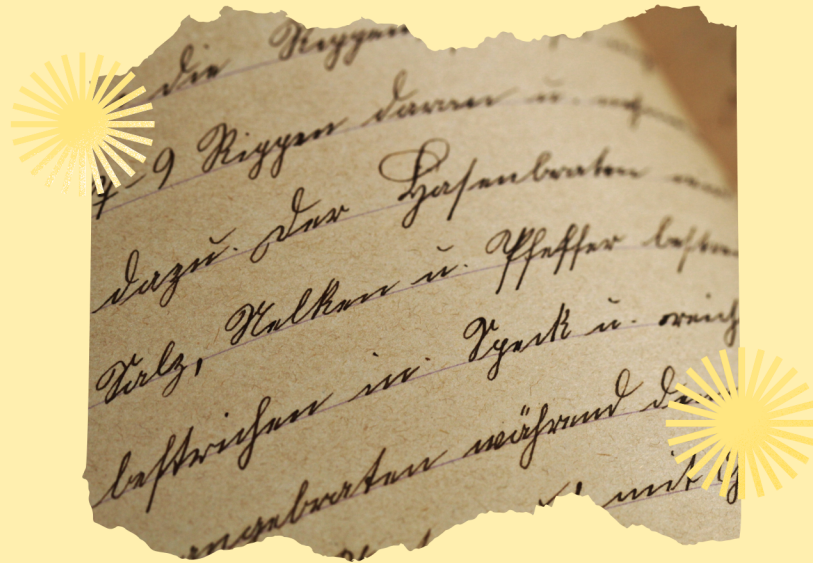 die Rippen
9 Rippen daran u.
dazu. Der Hasenbraten
Salz, Nelken u. Pfeffer
bestrichen m. Speck u. reich
angebraten während
mit